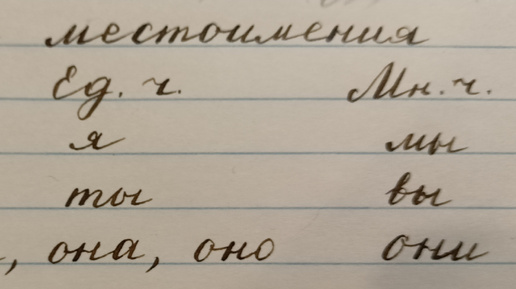 местоимения
Ед. ч. Мн. ч.
я мы
ты вы
, она, оно они